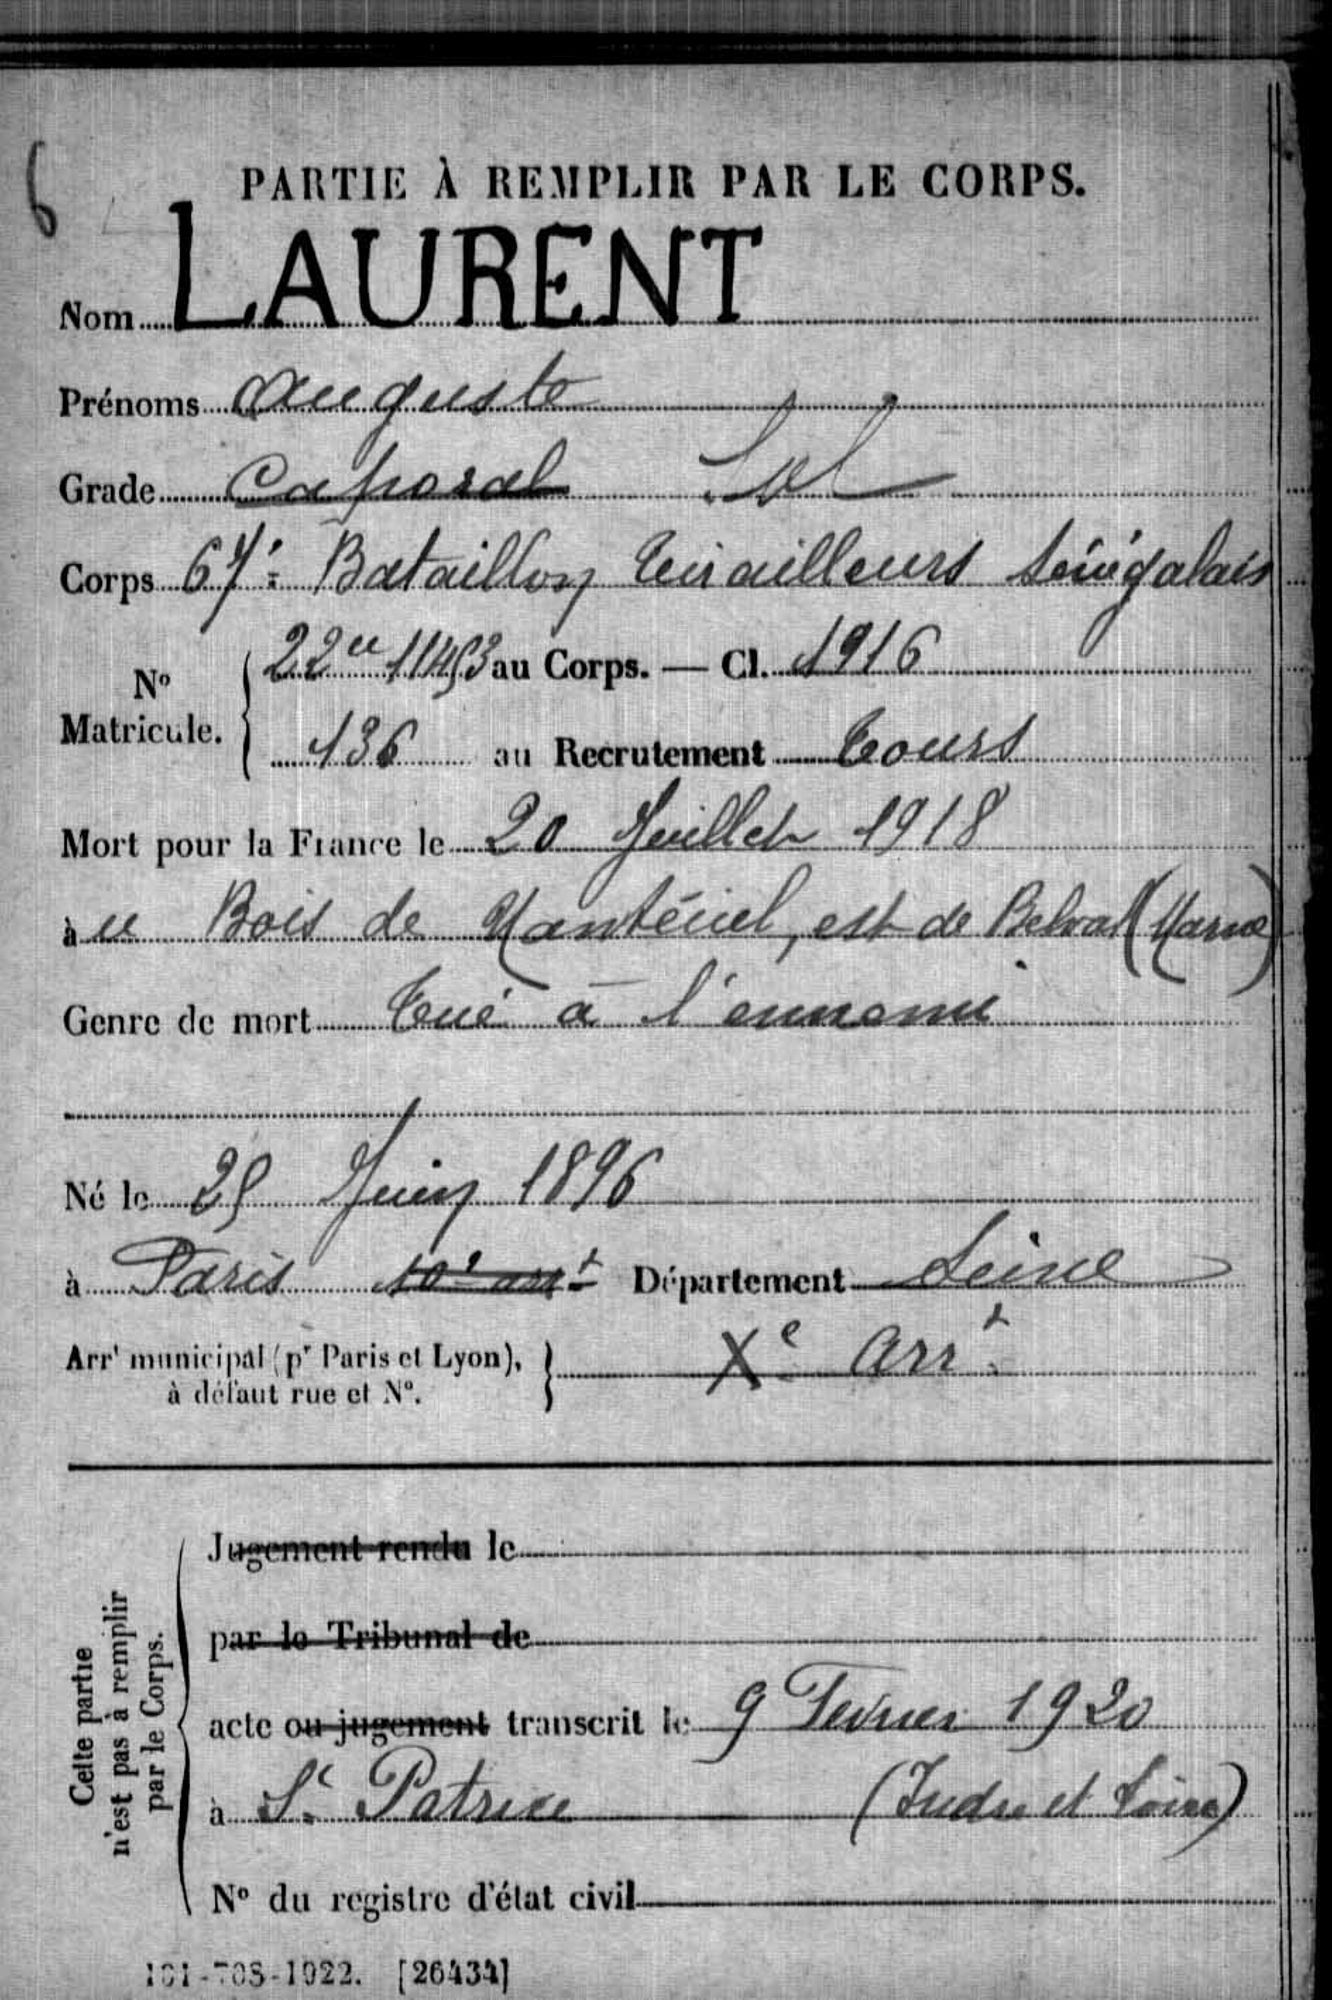 6
PARTIE À REMPLIR PAR LE CORPS.
Nom LAURENT
Prénoms Auguste
Grade Caporal Sol
Corps 67e Bataillon Tirailleurs Sénégalais
No Matricule. 22ce 11453 au Corps. — Cl. 1916
136 au Recrutement Tours
Mort pour la France le 20 Juillet 1918
à u Bois de Nantéuiel, est de Belval (Marne)
Genre de mort Tué à l'ennemi
Né le 25 Juin 1896
à Paris 10e arrt Département Seine
Arrt municipal (pr Paris et Lyon), Xe Arrt
à défaut rue et No.
Cette partie n'est pas à remplir par le Corps.
Jugement rendu le
par le Tribunal de
acte ou jugement transcrit le 9 Fevrier 1920
à St Patrice (Indre et Loire)
No du registre d'état civil
101-708-1922. [26434]